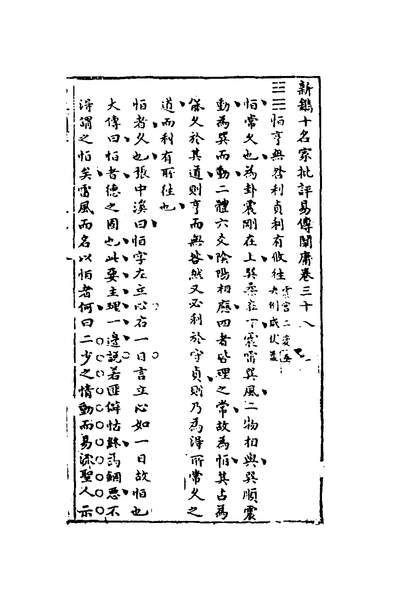 新鐫十名家批評易傳闡庸卷三十八
䷟恒亨無咎利貞利有攸往
恒常久也為卦震剛在上巽柔在下震雷巽風二物相與巽順震
動為巽而動二體六爻陰陽相應四者皆理之常故為恒其占為
能久於其道則亨而無咎然又必利於守貞則乃為得所常久之
道而利有所往也
恒者久也張中溪曰恒字左立心右一日言立心如一日故恒也
大傳曰恒者德之固也此要主理一邊說若匪僻怙終為錮惡不
得謂之恒矣雷風而名以恒者何曰二少之情動而易流聖人示